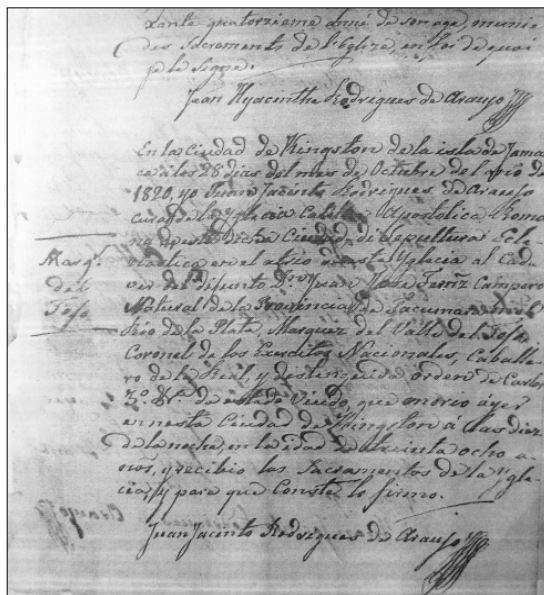 xante quatorzieme année de son age, munie
des Sacrements de l'Eglize, en foi de quoi
je le Signe.
Jean Hyacinthe Rodrigues de Araujo
En la Ciudad de Kingston de la isla de Jama
ca á los 28 dias del mes de Octubre del año de
1820, yo Juan Jacinto Rodriques de Araujo
cura de la Yglecia Catolica Apostolica Roma
na de esta Ciudad, di Sepultura Ecle
ciastica en el atrio de esta Yglecia al Cada
ver del difunto Dn. Juan José Fernz Campero
Natural de la Provincia de Tucuman en el
Rio de la Plata, Marquez del Valle del Tojo
Coronel de los Exercitos Nacionales, Caballe
ro de la Real, y distinguida orden de Carlos
3º. de estado Viudo, que morio áyer
en nesta Ciudad de Kingston á las diez
de la noche, en la edad de treinta ocho a
ños, y recibio los Sacramentos de la Ygle
cia, y para que Conste lo firmo.
Juan Jacinto Rodrigues de Araujo
Marqs.
del
Tojo